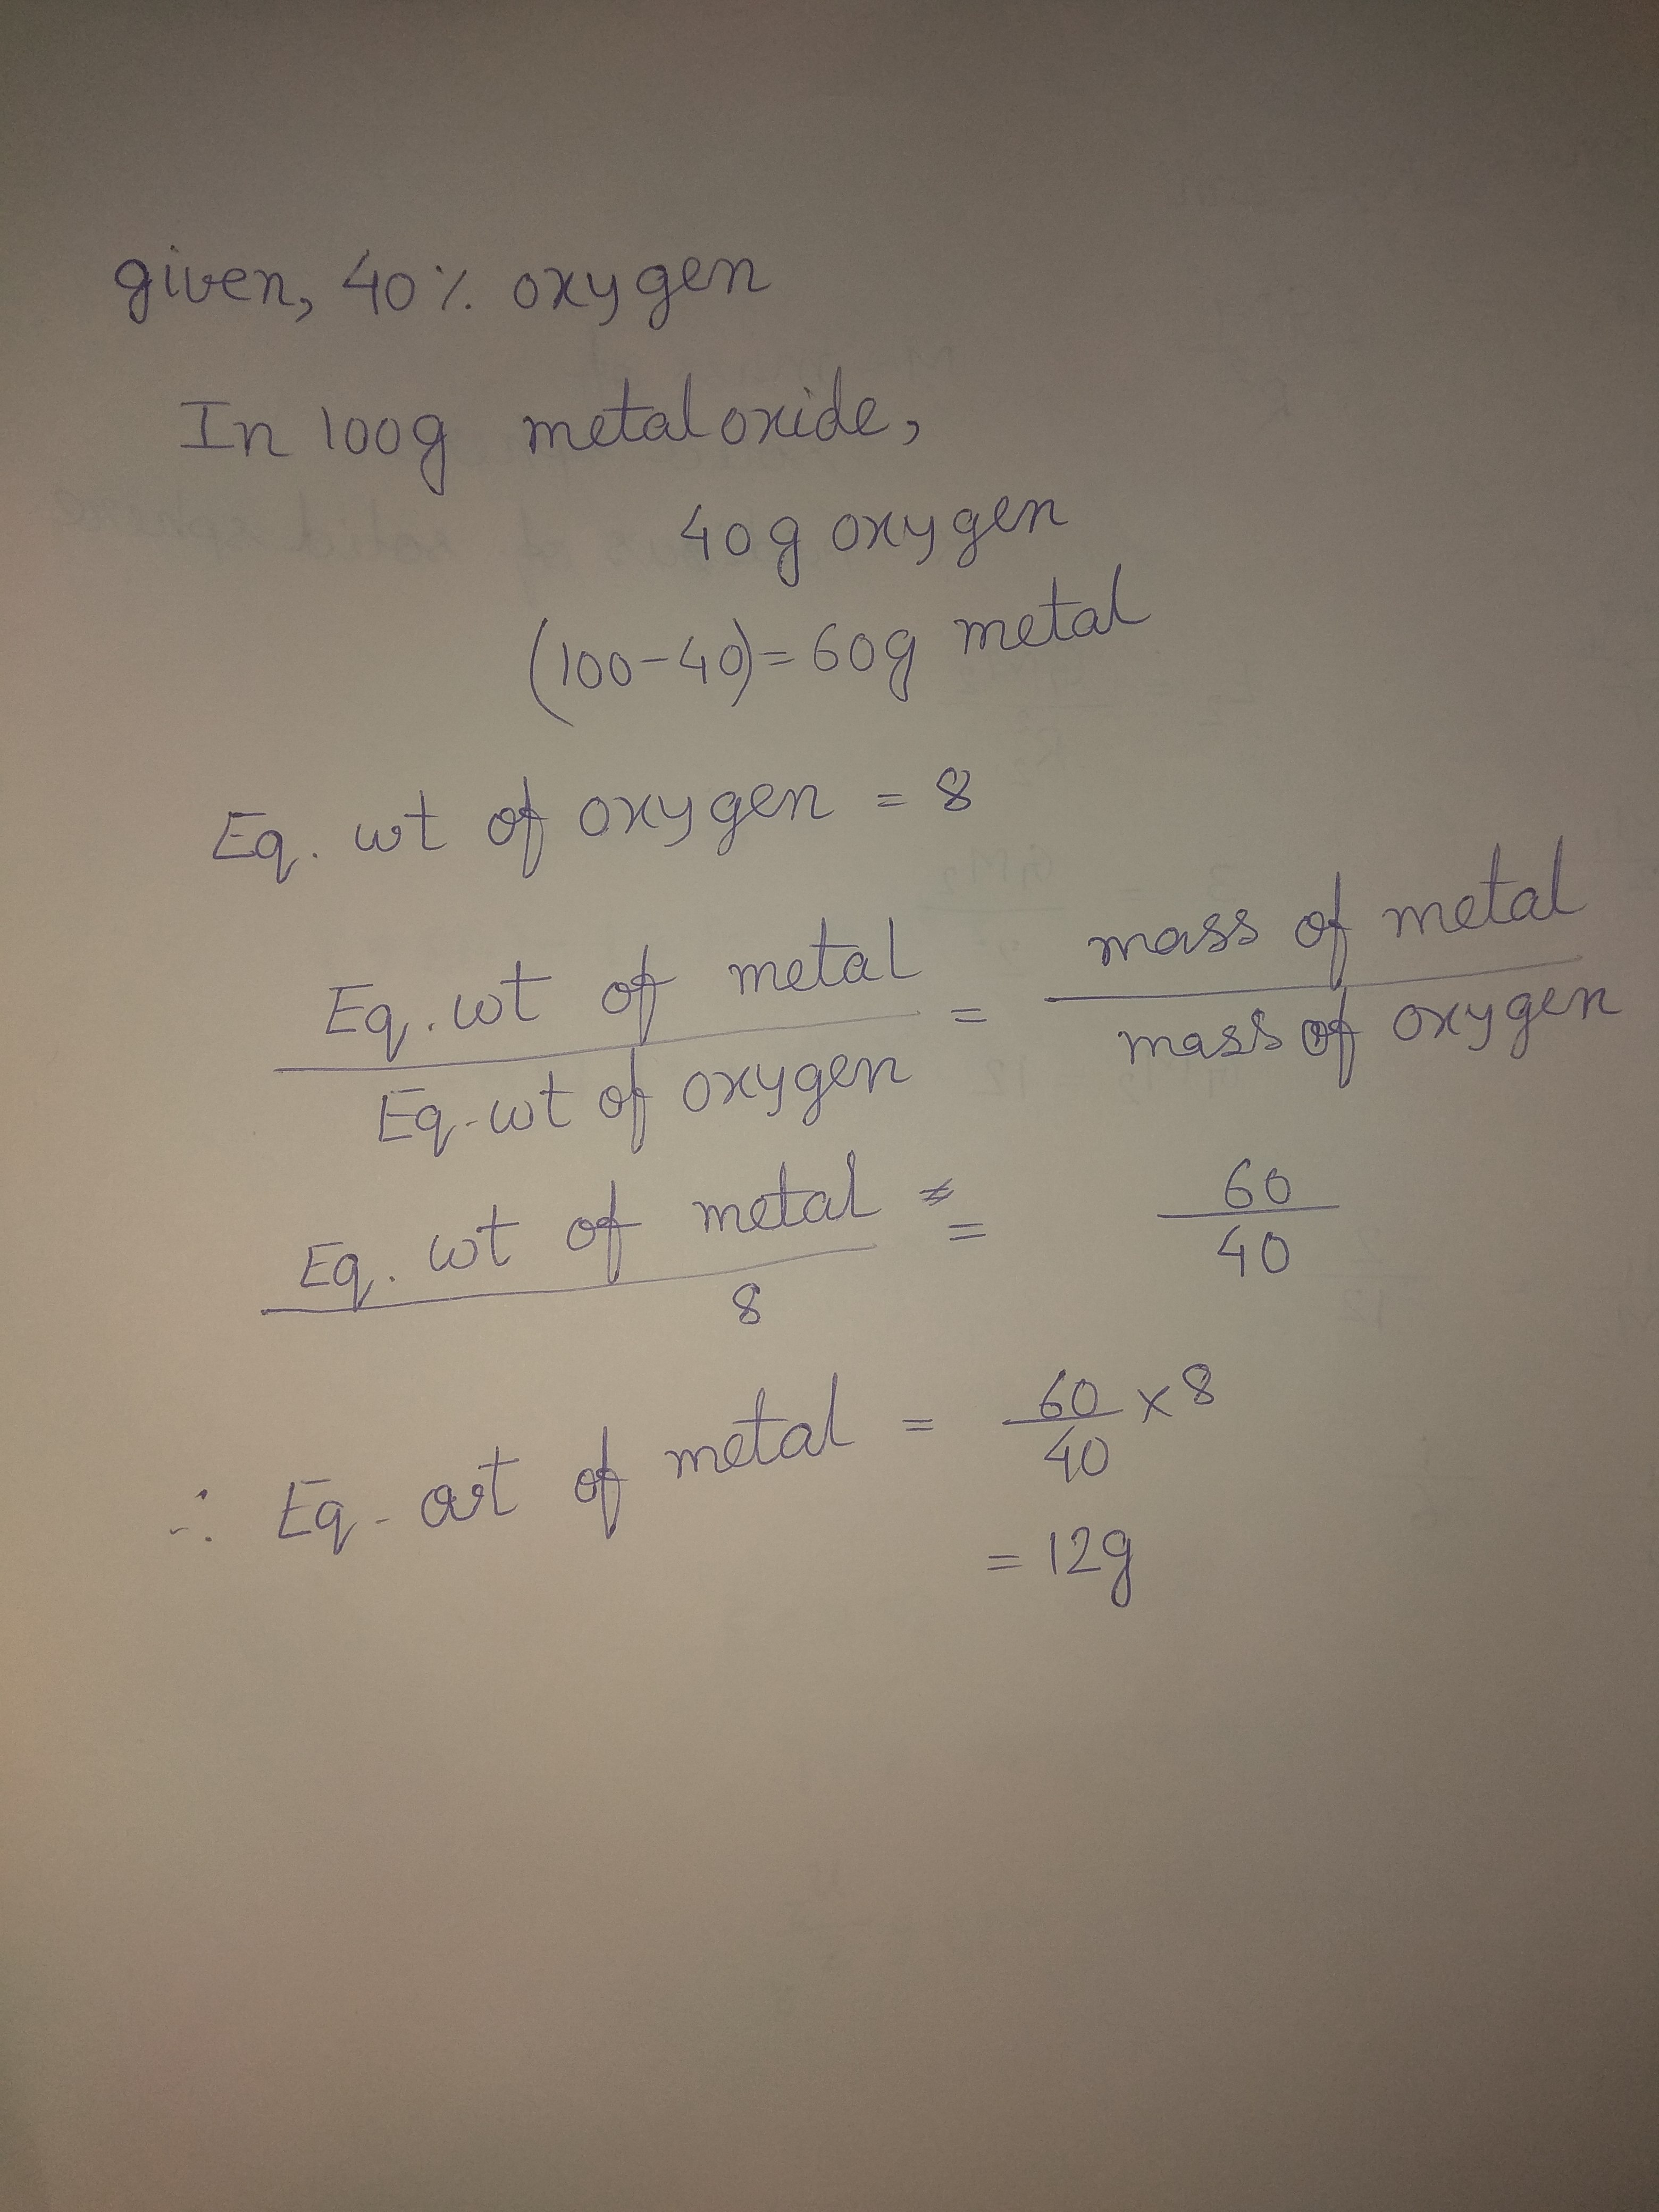 given, 40% oxygen
In 100g metal oxide,
40g oxygen
(100-40)=60g metal
Eq. wt of oxygen = 8
Eq. wt of metal / Eq-wt of oxygen = mass of metal / mass of oxygen
Eq. wt of metal / 8 = 60 / 40
∴ Eq- wt of metal = 60/40 × 8
= 12g